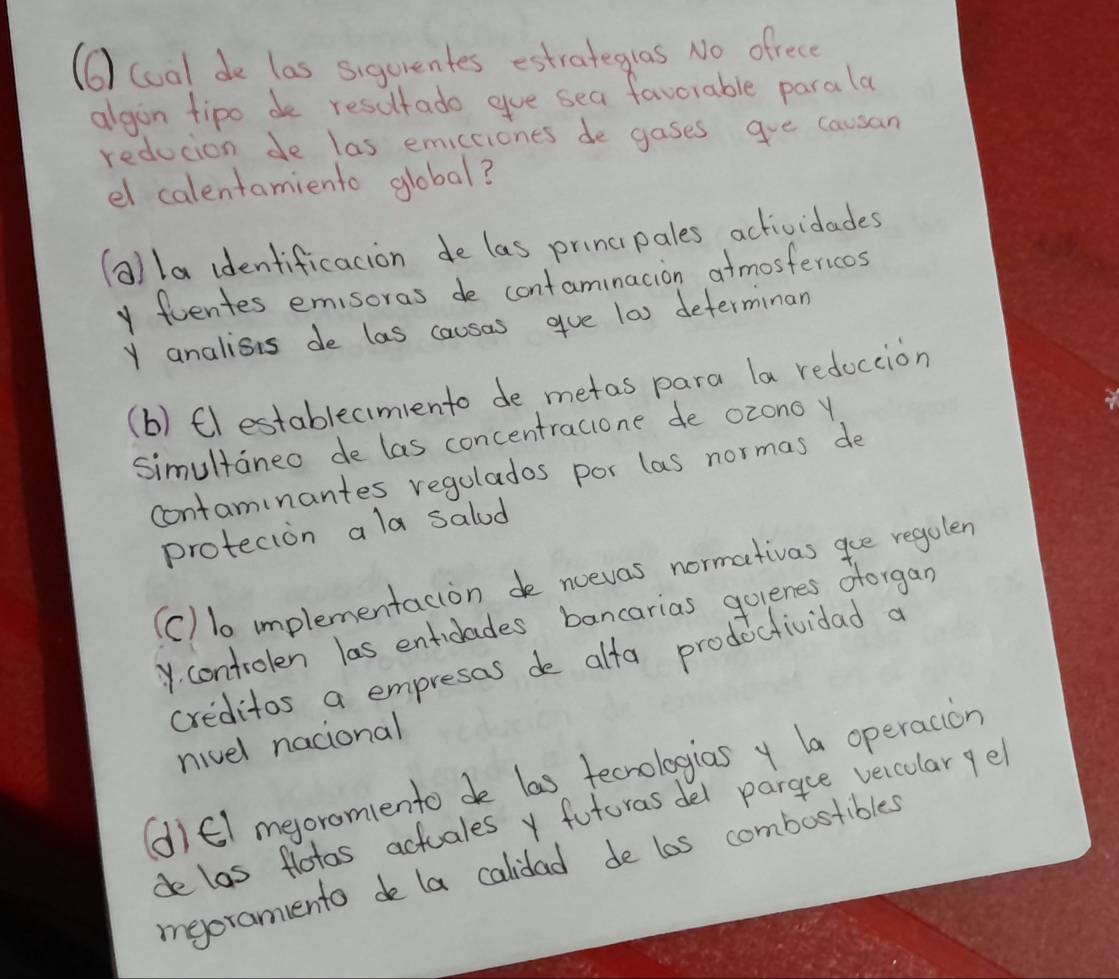 (6) Cuál de las siguientes estrategias No ofrece
algún tipo de resultado que sea favorable para la
reducion de las emicciones de gases que causan
el calentamiento global?
(a) la identificación de las principales actividades
y fuentes emisoras de contaminación atmosfericos
y analisis de las causas que las determinan
(b) El establecimiento de metas para la reducción
simultáneo de las concentracione de ozono y
contaminantes regulados por las normas de
protección a la salud
(c) la implementación de nuevas normativas que regulen
y. controlen las entidades bancarias quienes otorgan
créditos a empresas de alta productividad a
nivel nacional
(d) El mejoramiento de las tecnologias y la operación
de las flotas actuales y futuras del parque veicular y el
mejoramiento de la calidad de los combustibles